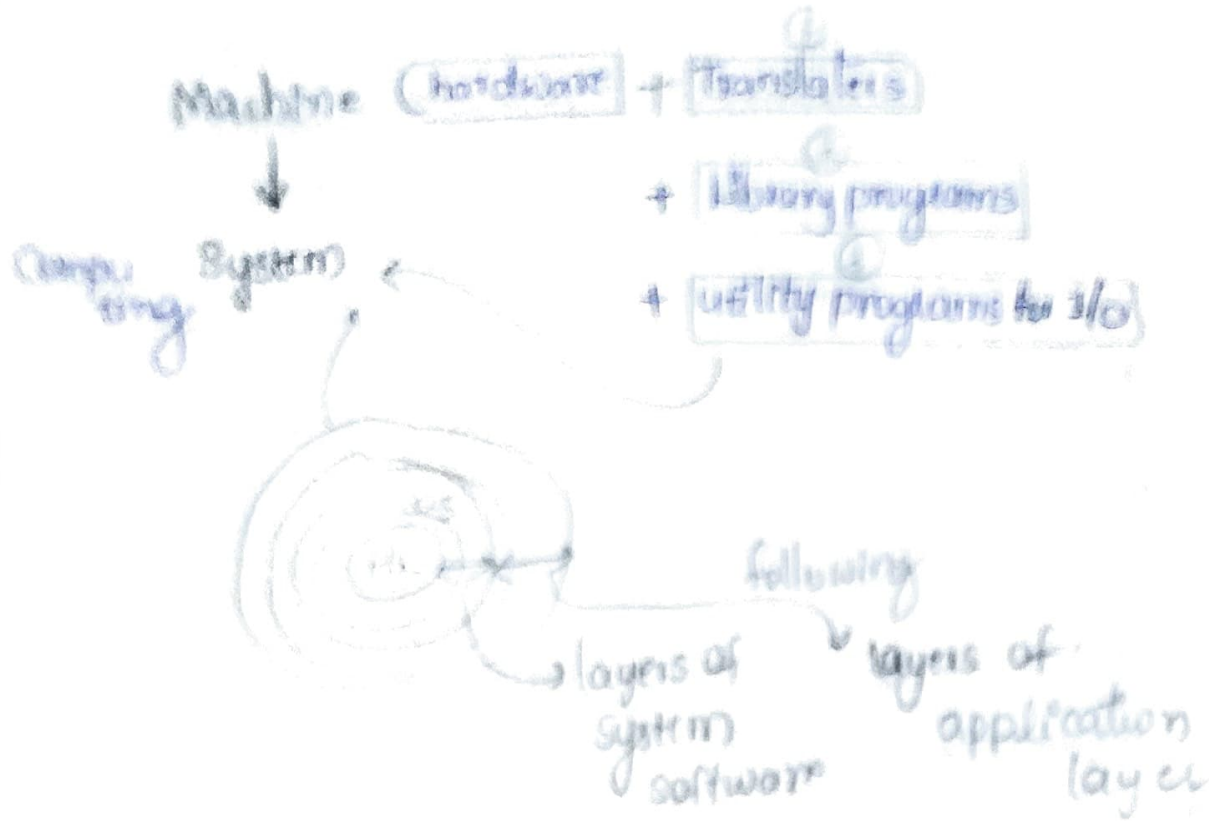 Machine (hardware + Translaters
+ Library programs
+ utility programs for I/O
Compu
ting System
H/w
following
layers of
system
software
layers of
application
layer